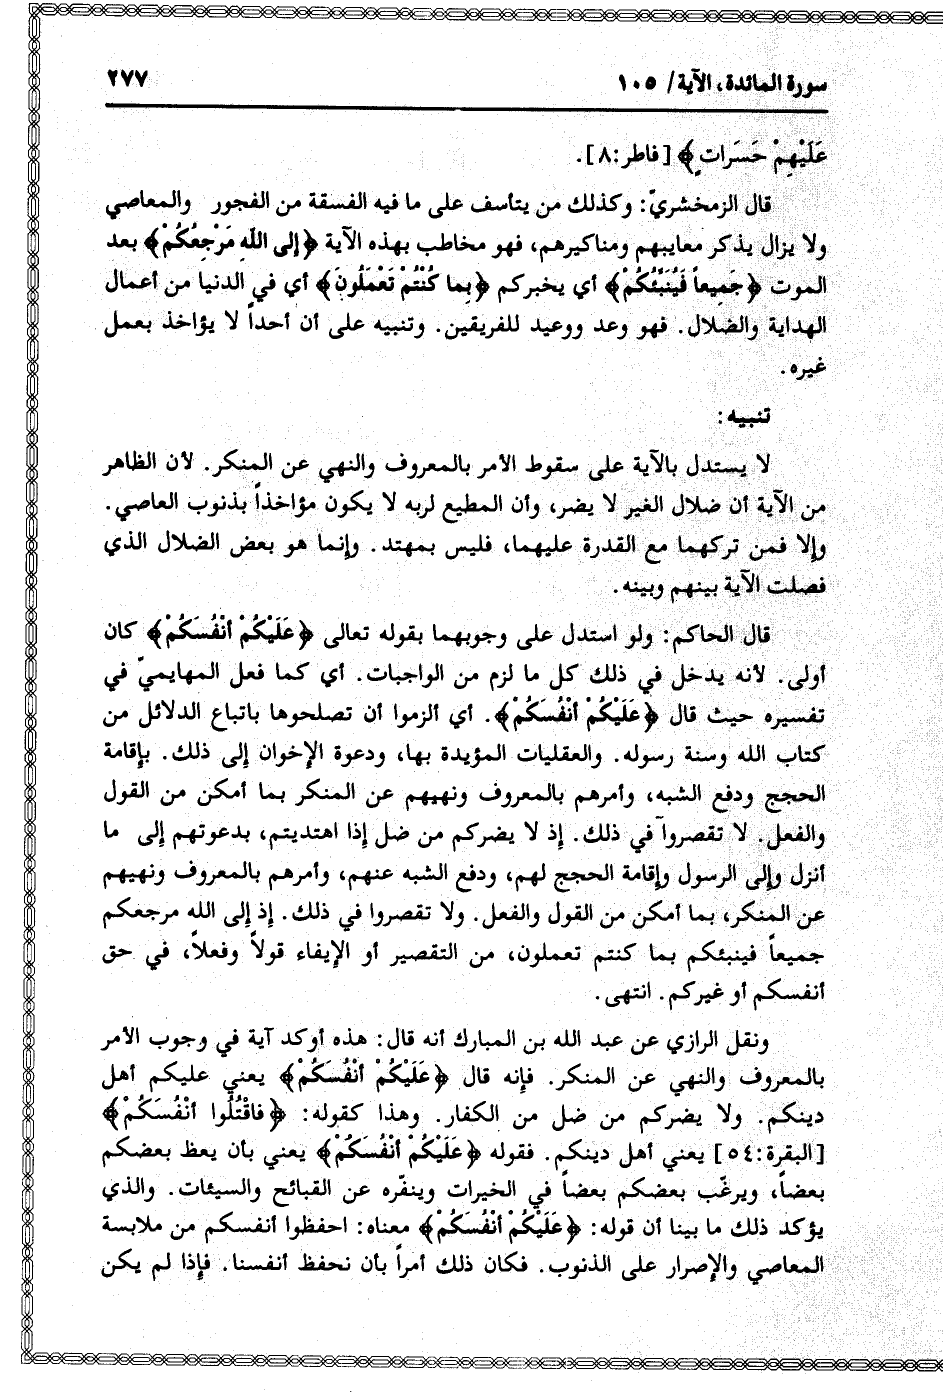 سورة المائدة، الآية/ ١٠٥ ٢٧٧
عَلَيْهِمْ حَسَرَاتٍ﴾ [فاطر:٨].
قال الزمخشريّ: وكذلك من يتأسف على ما فيه الفسقة من الفجور والمعاصي
ولا يزال يذكر معايبهم ومناكيرهم، فهو مخاطب بهذه الآية ﴿إلى اللَّهِ مَرْجِعُكُمْ﴾ بعد
الموت ﴿جَمِيعاً فَيُنَبِّئُكُمْ﴾ أي يخبركم ﴿بِما كُنْتُمْ تَعْمَلُونَ﴾ أي في الدنيا من أعمال
الهداية والضلال. فهو وعد ووعيد للفريقين. وتنبيه على أن أحداً لا يؤاخذ بعمل
غيره.
تنبيه:
لا يستدل بالآية على سقوط الأمر بالمعروف والنهي عن المنكر. لأن الظاهر
من الآية أن ضلال الغير لا يضر، وأن المطيع لربه لا يكون مؤاخذاً بذنوب العاصي.
وإلا فمن تركهما مع القدرة عليهما، فليس بمهتد. وإنما هو بعض الضلال الذي
فصلت الآية بينهم وبينه.
قال الحاكم: ولو استدل على وجوبهما بقوله تعالى ﴿عَلَيْكُمْ أنْفُسَكُمْ﴾ كان
أولى. لأنه يدخل في ذلك كل ما لزم من الواجبات. أي كما فعل المهايميّ في
تفسيره حيث قال ﴿عَلَيْكُمْ أنْفُسَكُمْ﴾. أي ألزموا أن تصلحوها باتباع الدلائل من
كتاب الله وسنة رسوله. والعقليات المؤيدة بها، ودعوة الإخوان إلى ذلك. بإقامة
الحجج ودفع الشبه، وأمرهم بالمعروف ونهيهم عن المنكر بما أمكن من القول
والفعل. لا تقصروا في ذلك. إذ لا يضركم من ضل إذا اهتديتم، بدعوتهم إلى ما
أنزل وإلى الرسول وإقامة الحجج لهم، ودفع الشبه عنهم، وأمرهم بالمعروف ونهيهم
عن المنكر، بما أمكن من القول والفعل. ولا تقصروا في ذلك. إذ إلى الله مرجعكم
جميعاً فينبئكم بما كنتم تعملون، من التقصير أو الإيفاء قولاً وفعلاً، في حق
أنفسكم أو غيركم. انتهى.
ونقل الرازي عن عبد الله بن المبارك أنه قال: هذه أوكد آية في وجوب الأمر
بالمعروف والنهي عن المنكر. فإنه قال ﴿عَلَيْكُمْ أنْفُسَكُمْ﴾ يعني عليكم أهل
دينكم. ولا يضركم من ضل من الكفار. وهذا كقوله: ﴿فاقْتُلُوا أنْفُسَكُمْ﴾
[البقرة:٥٤] يعني أهل دينكم. فقوله ﴿عَلَيْكُمْ أنْفُسَكُمْ﴾ يعني بأن يعظ بعضكم
بعضاً، ويرغّب بعضكم بعضاً في الخيرات وينفّره عن القبائح والسيئات. والذي
يؤكد ذلك ما بينا أن قوله: ﴿عَلَيْكُمْ أنْفُسَكُمْ﴾ معناه: احفظوا أنفسكم من ملابسة
المعاصي والإصرار على الذنوب. فكان ذلك أمراً بأن نحفظ أنفسنا. فإذا لم يكن